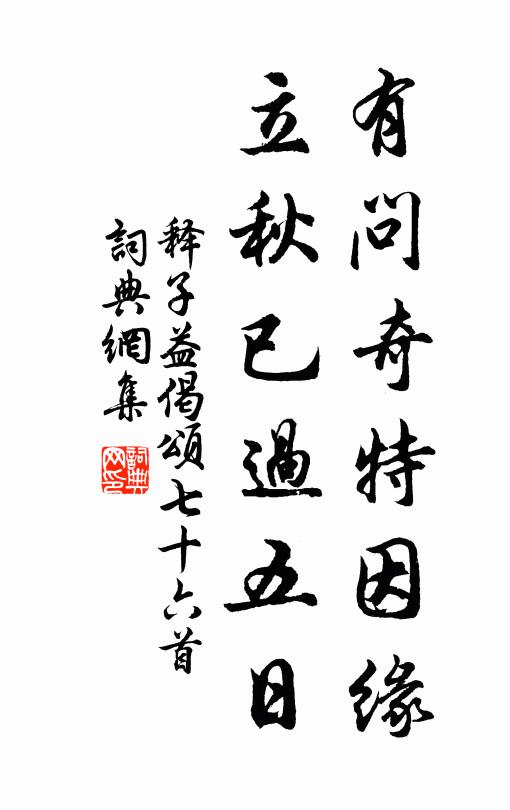 有問奇特因緣
立秋已過五日
释子益偈頌七十六首
詞典網集
詞典网印